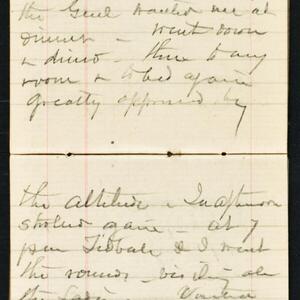 the Genl wanted me at
dinner – went down
& dined – then to my
room & to bed again
greatly oppressed by
the altitude – In afternoon
stroled again – at 7
pm Tidball & I went
the rounds – visiting all
the